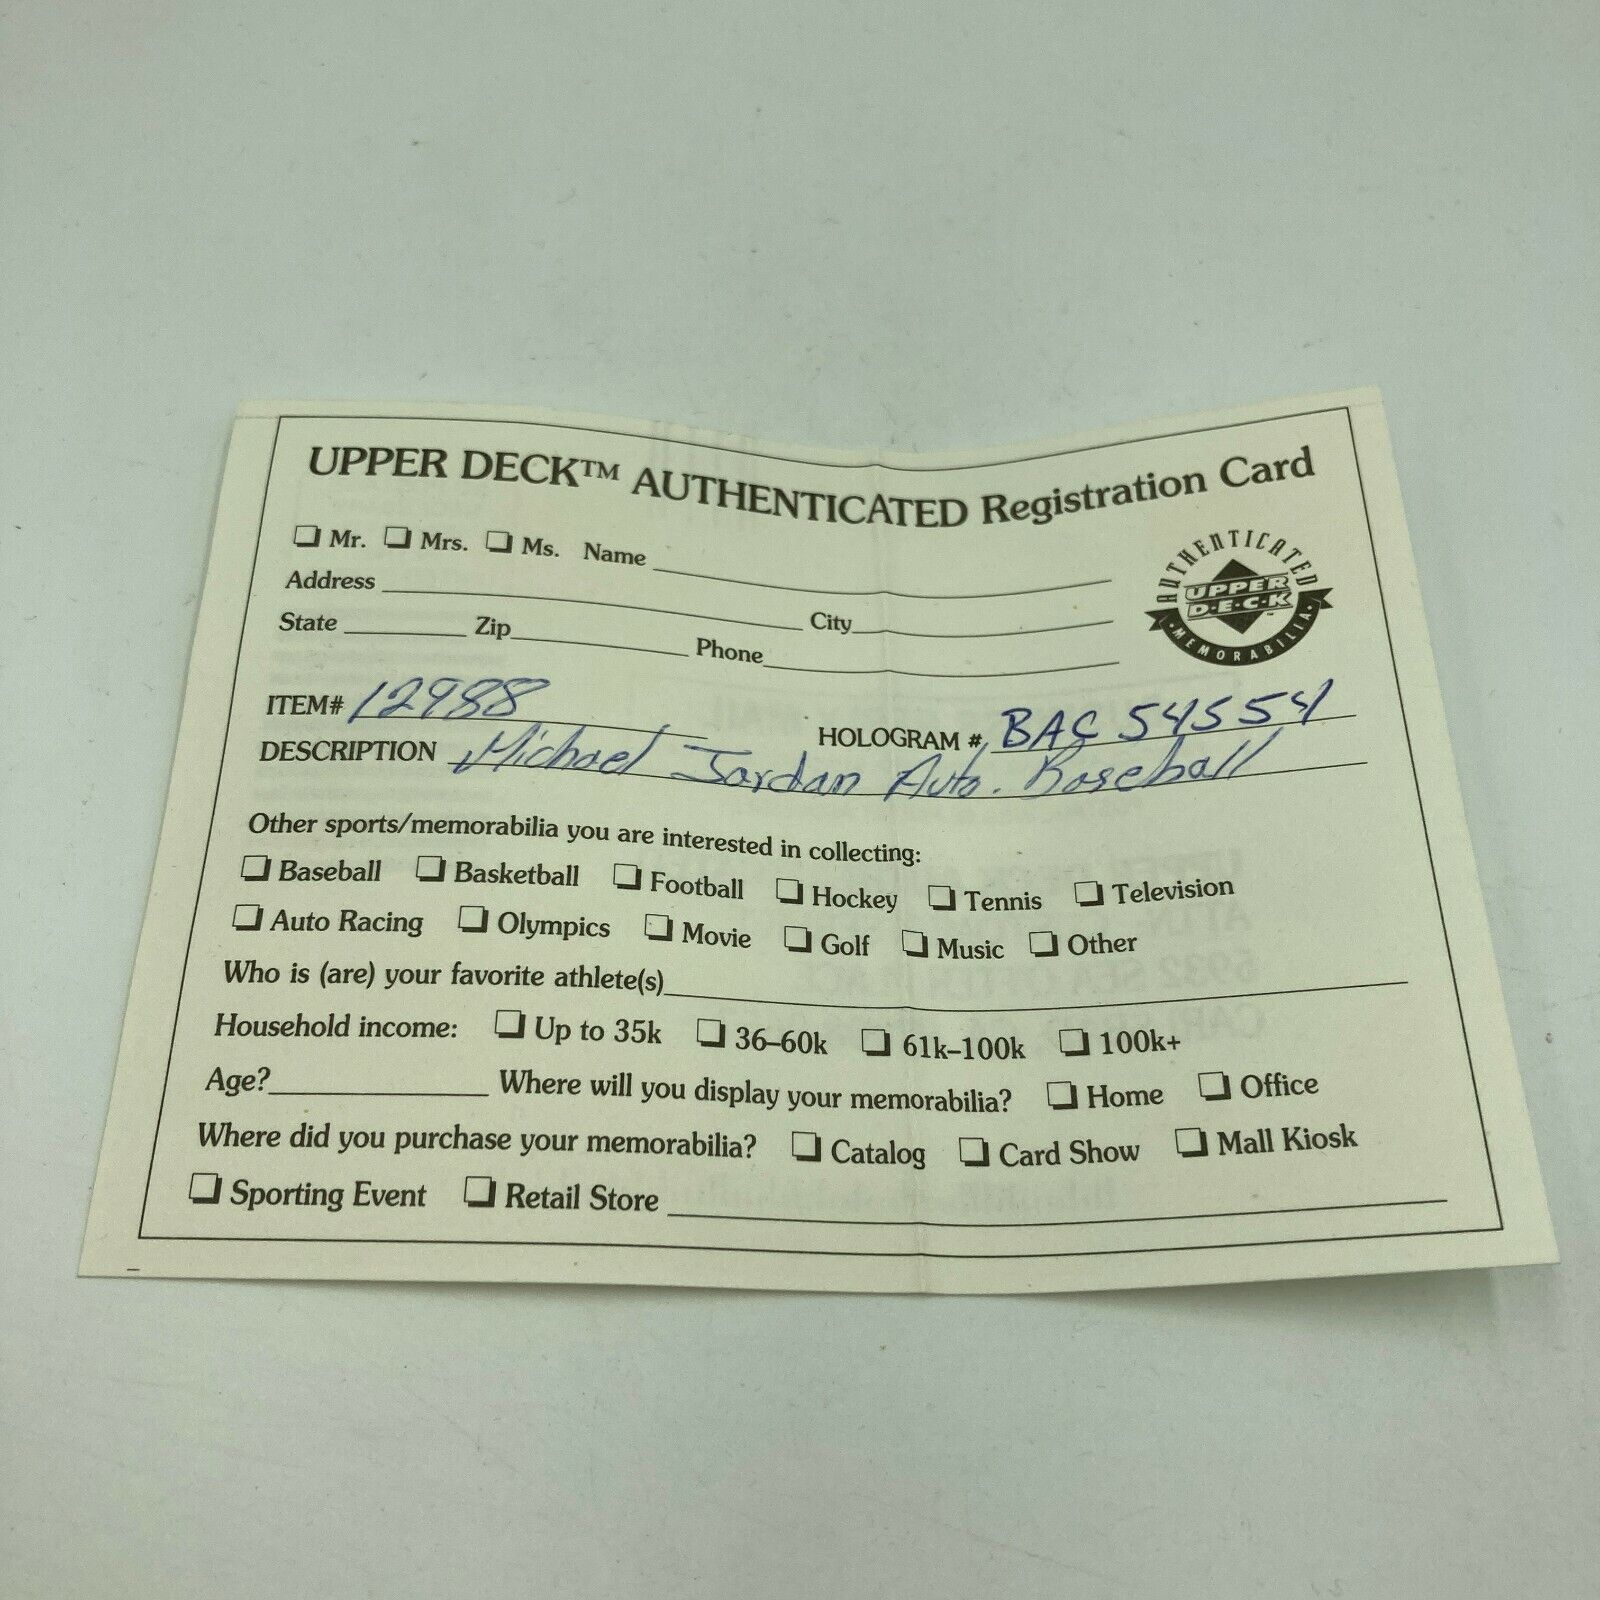 UPPER DECK™ AUTHENTICATED Registration Card
❏ Mr. ❏ Mrs. ❏ Ms. Name
AUTHENTICATED
UPPER
D·E·C·K™
·MEMORABILIA·
Address City
State Zip Phone
ITEM# 12988 HOLOGRAM # BAC 54554
DESCRIPTION Michael Jordan Auto. Baseball
Other sports/memorabilia you are interested in collecting:
❏ Baseball ❏ Basketball ❏ Football ❏ Hockey ❏ Tennis ❏ Television
❏ Auto Racing ❏ Olympics ❏ Movie ❏ Golf ❏ Music ❏ Other
Who is (are) your favorite athlete(s)
Household income: ❏ Up to 35k ❏ 36–60k ❏ 61k–100k ❏ 100k+
Age? Where will you display your memorabilia? ❏ Home ❏ Office
Where did you purchase your memorabilia? ❏ Catalog ❏ Card Show ❏ Mall Kiosk
❏ Sporting Event ❏ Retail Store